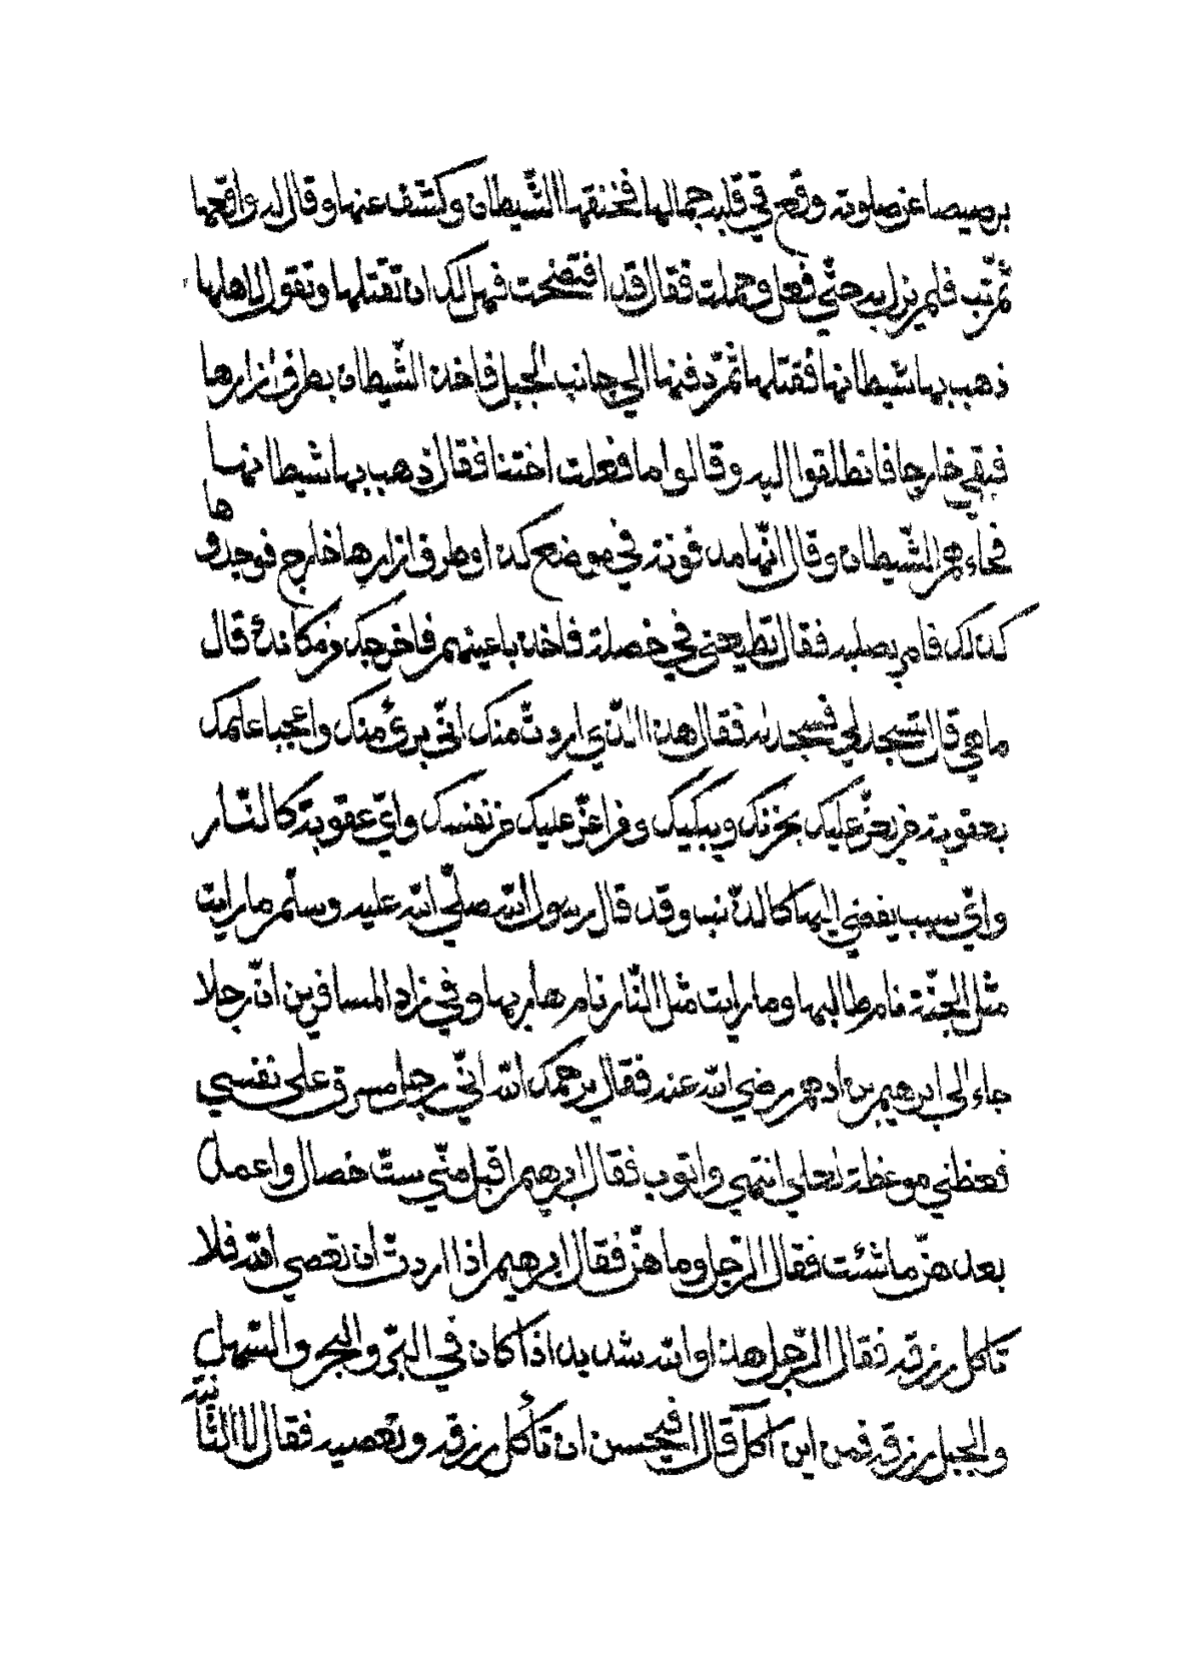 برصيصا عن صلوته وقع في قلبه جمالها فخنقها الشّيطان وكشّف عنها وقال له واقعها
ثمّ تب فلم يزل به حتّي فعل وحملت فقال قد افتضحت فهل لك ان تقتلها وتقول لاهلها
ذهب بها شيطانها فقتلها ثمّ دفنها الي جانب الجبل فاخذ الشّيطان بطرف ازارها
فبقي خارجا فانطلقوا اليه وقالوا ما فعلت اختنا فقال ذهب بها شيطانها
فجاءهم الشّيطان وقال انّها مدفونة في موضع كذا وطرف ازارها خارج فوجدوها
كذلك فامر بصلبه فقال تطيعني في خصلة فاخذ باعينهم فاخرجك من مكانك قال
ما هي قال تسجد لي فسجد له فقال هذا الّذي اردتّ منك انّي برئ منك واعجبا عليك
بعقوبة من يعزّ عليك يحزنك ويبكيك وفراعزّ عليك من نفسك وايّ عقوبة كالنّار
وايّ سبب يفضي اليها كالذّنب وقد قال رسول الله صلّي الله عليه وسلّم ما رايت
مثل الجنّة نام طالبها وما رايت مثل النّار نام هاربها وفي زاد المسافرين انّ رجلا
جاء الي ابرهيم بن ادهم رضي الله عنه فقال يرحمك الله انّي رجل مسرف علي نفسي
فعظني موعظة لعلي انتهي واتوب فقال ابرهيم اقبل منّي ستّ خصال واعمل
بعدهنّ ما شئت فقال الرّجل وما هنّ فقال ابرهيم اذا اردتّ ان تعصي الله فلا
تاكل رزقه فقال الرّجل هذا والله شديد اذا كان في البرّ والبحر والسّهل
والجبل رزقه فمن اين آكل قال افيحسن ان تأكل رزقه وتعصيه فقال لا الثّانية